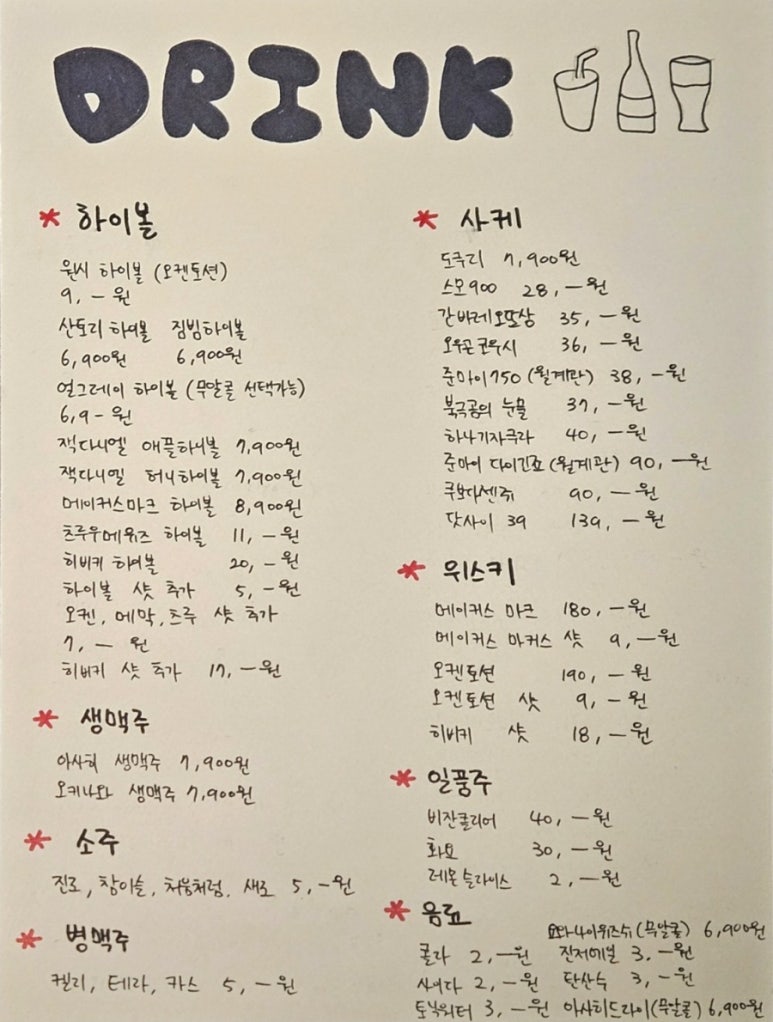 DRINK
* 하이볼
원시 하이볼 (오켄토션)
9, - 원
산토리 하이볼 짐빔하이볼
6,900원 6,900원
얼그레이 하이볼 (무알콜 선택가능)
6,9 - 원
잭다니엘 애플하이볼 7,900원
잭다니엘 허니하이볼 7,900원
메이커스마크 하이볼 8,900원
츠루우메유즈 하이볼 11, - 원
히비키 하이볼 20, - 원
하이볼 샷 추가 5, - 원
오켄, 메막, 츠루 샷 추가
7, - 원
히비키 샷 추가 17, - 원
* 생맥주
아사히 생맥주 7,900원
오키나와 생맥주 7,900원
* 소주
진로, 참이슬, 처음처럼, 새로 5, - 원
* 병맥주
켈리, 테라, 카스 5, - 원
* 사케
도쿠리 7,900원
스모900 28, - 원
간바레오또상 35, - 원
오우곤코우시 36, - 원
준마이750 (월계관) 38, - 원
북극곰의 눈물 37, - 원
하나기자쿠라 40, - 원
준마이 다이긴죠 (월계관) 90, - 원
쿠보다센쥬 90, - 원
닷사이 39 139, - 원
* 위스키
메이커스 마크 180, - 원
메이커스 마커스 샷 9, - 원
오켄토션 190, - 원
오켄토션 샷 9, - 원
히비키 샷 18, - 원
* 일품주
비잔클리어 40, - 원
화요 30, - 원
레몬 슬라이스 2, - 원
* 음료
(무알콜) 6,900원
콜라 2, - 원 진저에일 3, - 원
사이다 2, - 원 탄산수 3, - 원
토닉워터 3, - 원 아사히드라이(무알콜) 6,900원